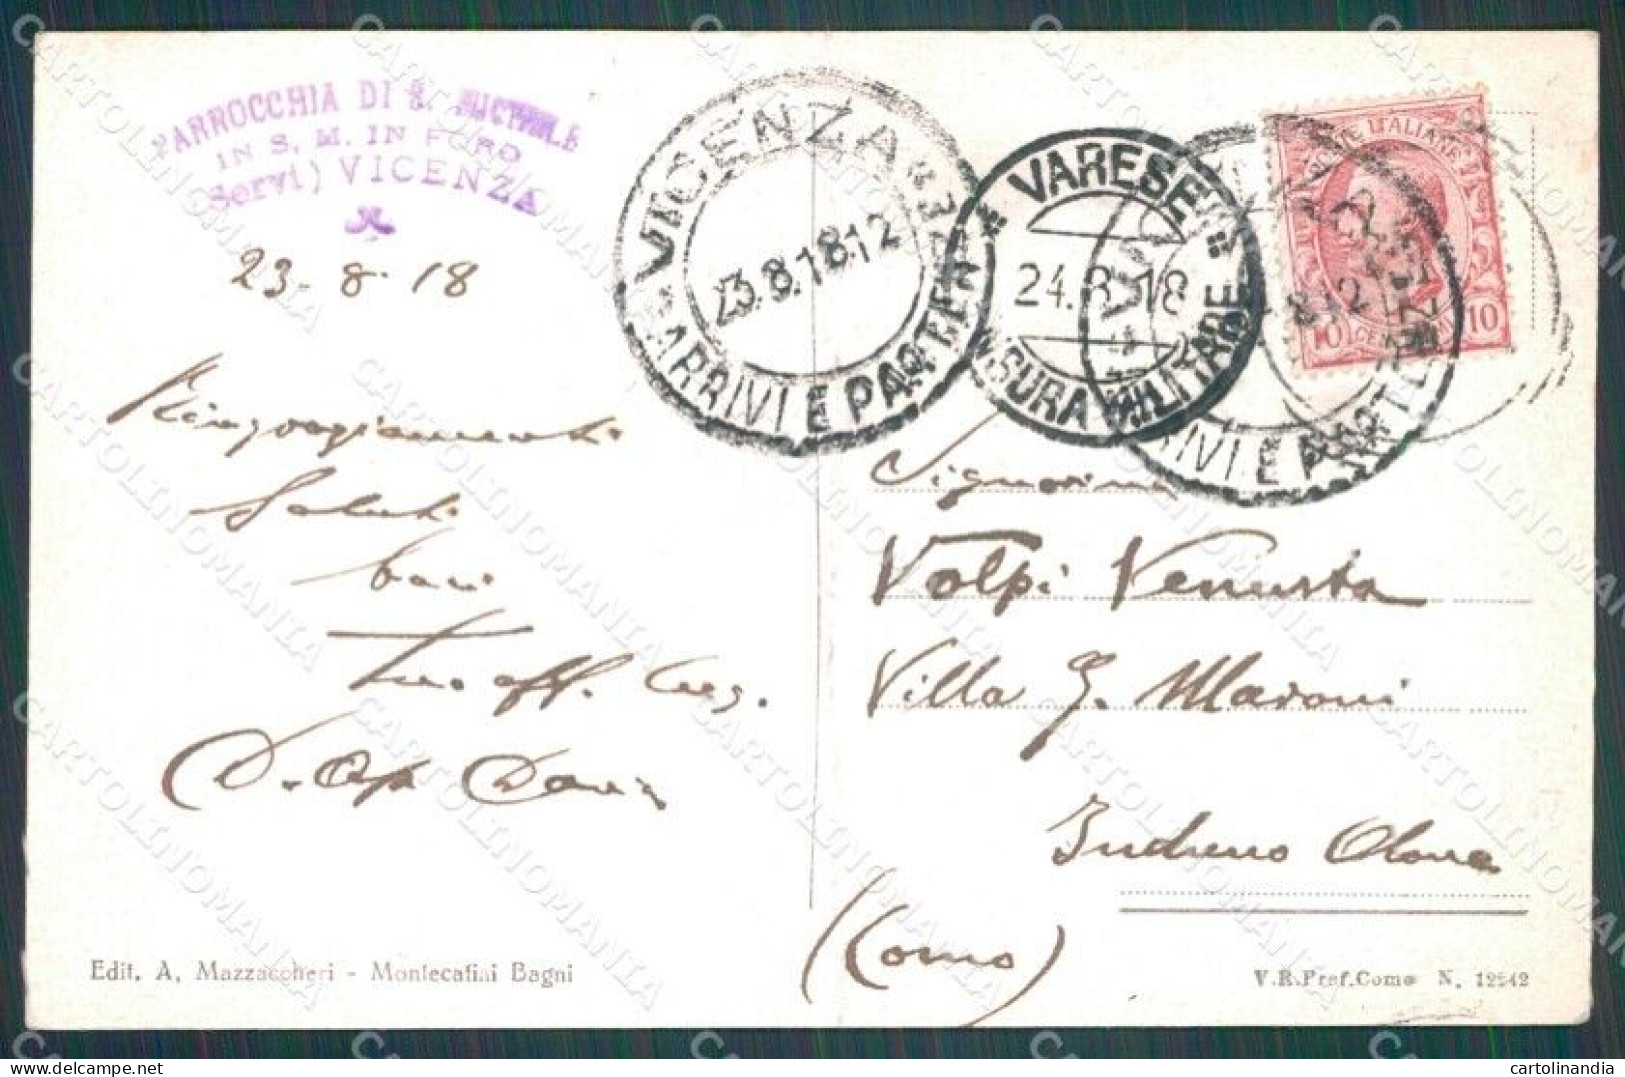 PARROCCHIA DI S. MICHELE
IN S. M. IN FORO
(Servi) VICENZA
23-8-18
VICENZA
ARRIVI E PARTENZA
23.8.18.12
VARESE
24.8.18
CENSURA MILITARE
VICENZA
ARRIVI E PARTENZA
POSTE ITALIANE
10 CENTESIMI 10
Ringraziamenti
Saluti
cari
Suo aff.
D.
Signorina
Volpi Venusta
Villa G. Maroni
Induno Olona
(Como)
Edit. A. Mazzaccheri - Montecatini Bagni
V.R.Pref.Como N. 12542
CARTOLINOMANIA
cartolinandia